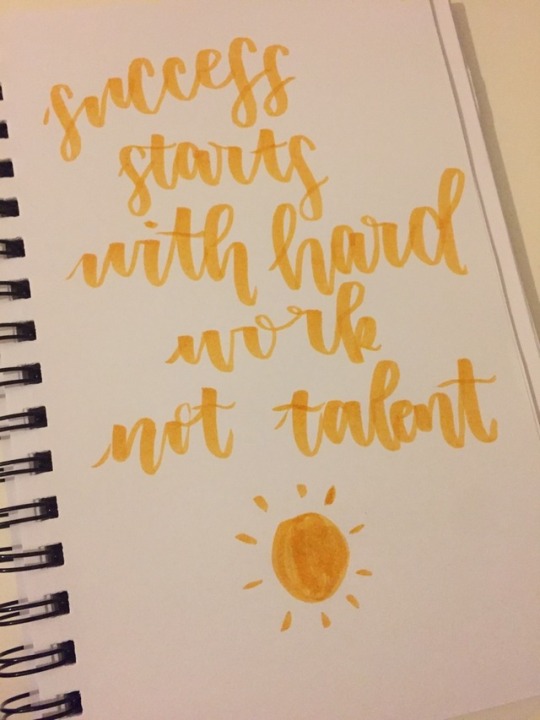 success
starts
with hard
work
not talent